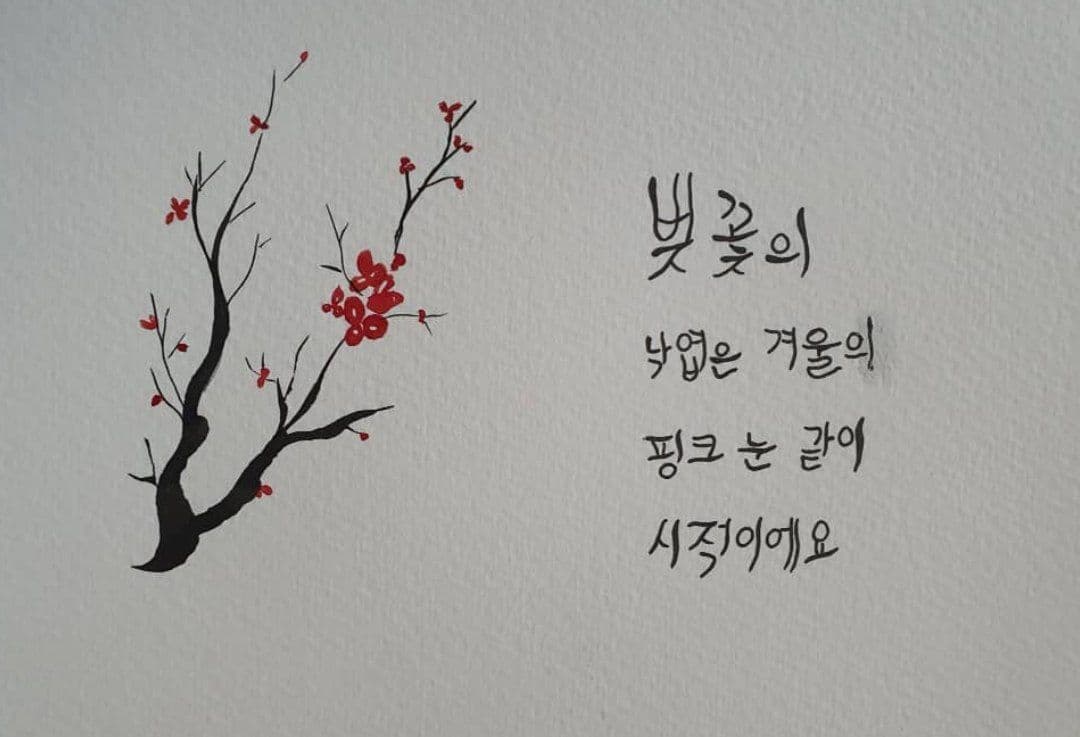 벚꽃의
낙엽은 겨울의
핑크 눈 같이
시적이에요